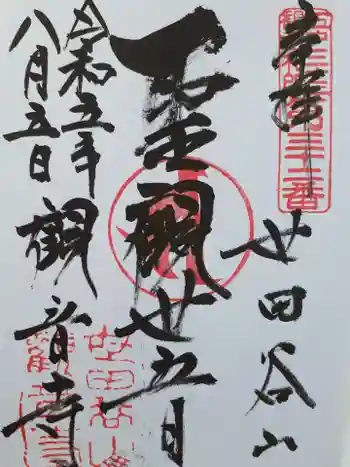 奉拝
世田谷山
聖観世音
観音寺
令和五年
八月五日
世田谷山
観音寺